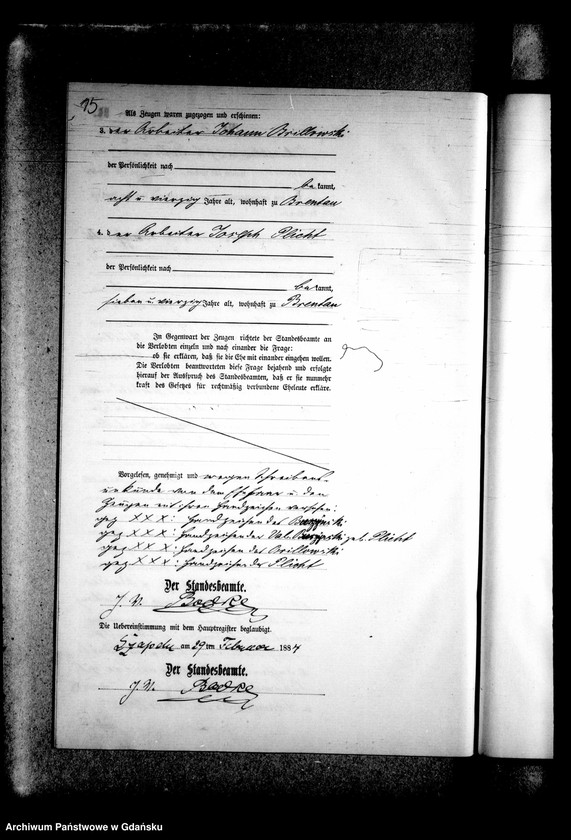 15
Als Zeugen waren zugezogen und erschienen:
3. der Arbeiter Johann Brillowski
der Persönlichkeit nach
be kannt,
acht u vierzig Jahre alt, wohnhaft zu Brentau
4. der Arbeiter Joseph Plicht
der Persönlichkeit nach
be kannt,
sieben u vierzig Jahre alt, wohnhaft zu Brentau
In Gegenwart der Zeugen richtete der Standesbeamte an
die Verlobten einzeln und nach einander die Frage:
ob sie erklären, daß sie die Ehe mit einander eingehen wollen.
Die Verlobten beantworteten diese Frage bejahend und erfolgte
hierauf der Ausspruch des Standesbeamten, daß er sie nunmehr
kraft des Gesetzes für rechtmäßig verbundene Eheleute erkläre.
Vorgelesen, genehmigt und wegen Schreibens-
unkunde von den u den
Zeugen mit ihren Handzeichen versehen.
gez X X X: Handzeichen des
gez X X X: Handzeichen der geb. Plicht
gez X X X: Handzeichen des Brillowski
gez X X X: Handzeichen des Plicht
Der Standesbeamte.
J. V. Badke
Die Uebereinstimmung mit dem Hauptregister beglaubigt.
am 29 ten Februar 1884
Der Standesbeamte.
J. V. Badke
Archiwum Państwowe w Gdańsku